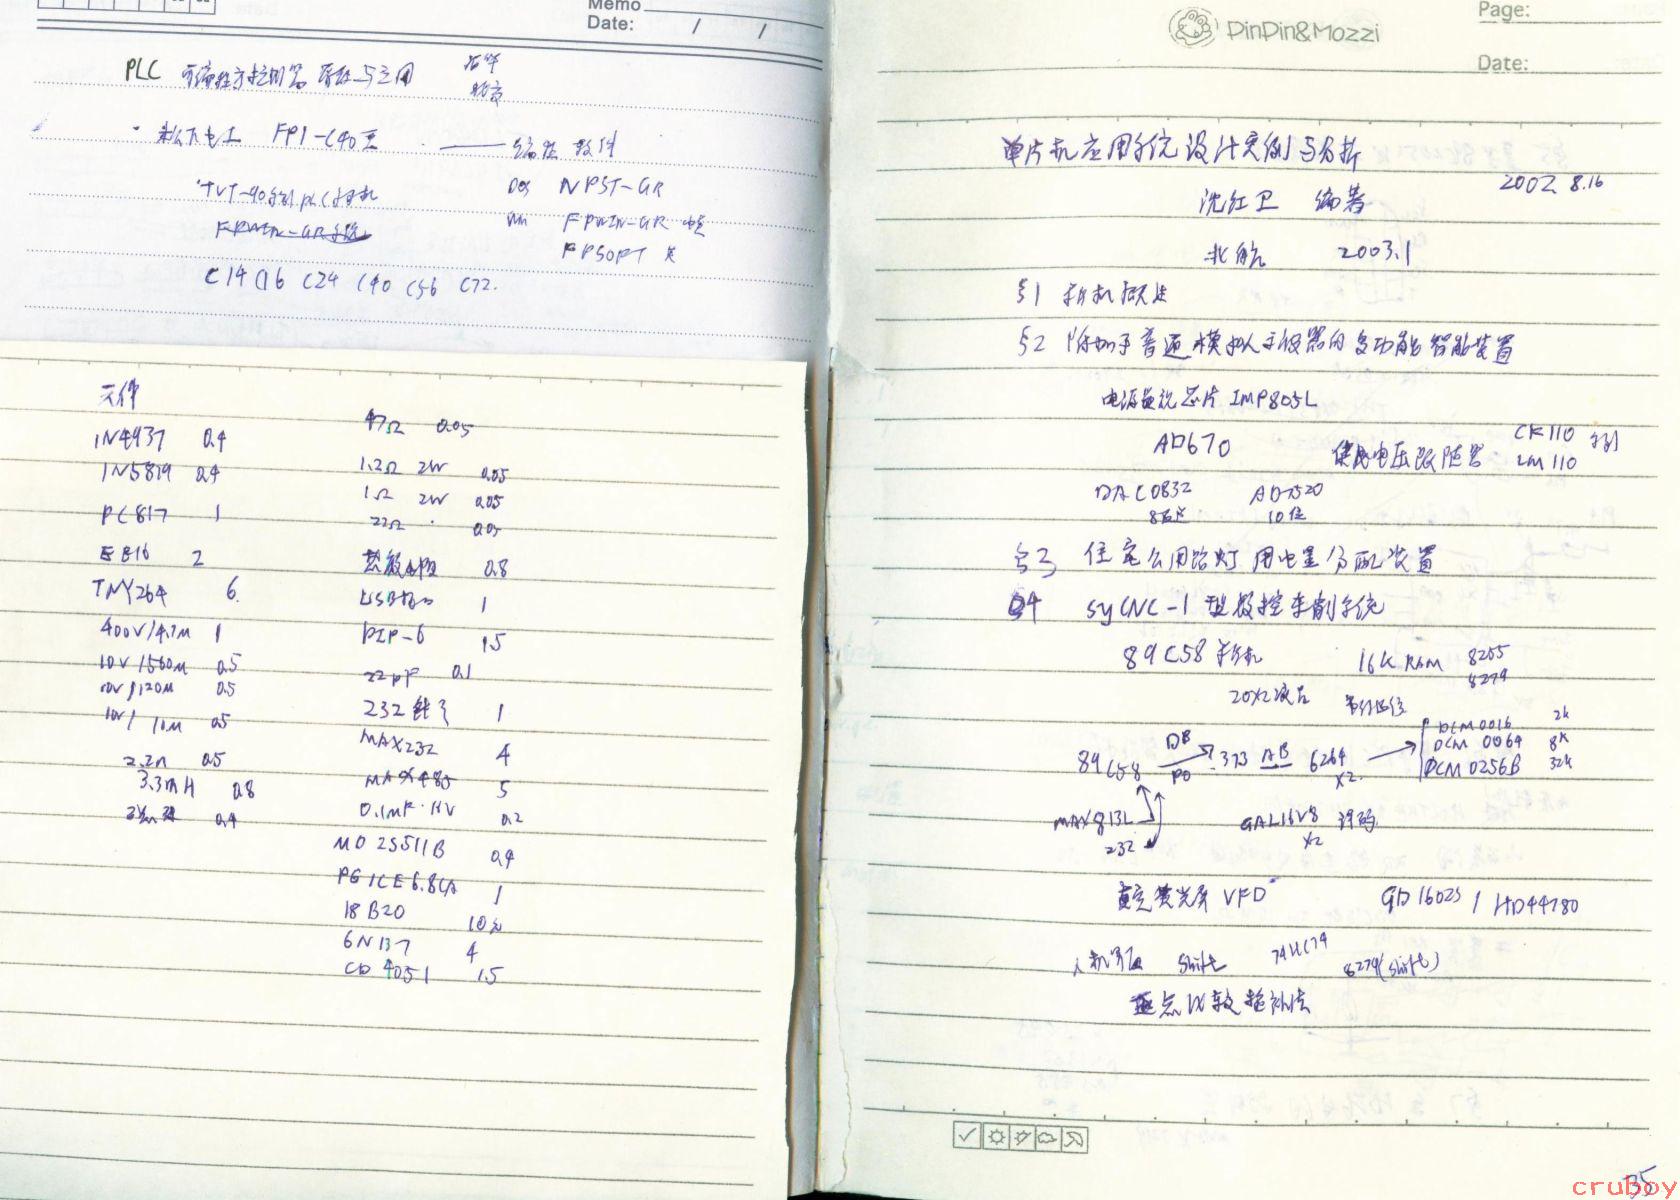 Memo
Date: / /
PLC 可编程序控制器 原理与应用
松下电工 FP1-C40型 —— 编程软件
TVT-90系列PLC学习机
Dos NPST-GR
Win FPWIN-GR 中文
FPSOFT 英
FPWIN-GR
C14 C16 C24 C40 C56 C72.
元件
1N4937 0.4
1N5819 0.4
PC817 1
E816 2
TNY264 6.
400V/4.7M 1
10V/560M 0.5
10V/120M 0.5
10V/10M 0.5
2.2n 0.5
3.3mH 0.8
0.4
47Ω 0.05
1.2Ω 2W 0.05
1Ω 2W 0.05
22Ω 0.05
热敏电阻 0.8
USB接口 1
DIP-6 1.5
22pF 0.1
232 1
MAX232 4
MAX485 5
0.1MF·1KV 0.2
MD 25511B 0.4
P61CE6.8CA 1
18B20 10元
6N137 4
CD 4051 1.5
PinPin&Mozzi
Page:
Date:
单片机应用系统设计实例与分析
2002 8.16
沈红卫 编著
北航 2003.1
§1 单片机概述
§2 附加于普通模拟示波器的多功能智能装置
电源监视芯片 IMP805L
AD670 集成电压跟随器 CF110 LM110 系列
DAC0832 AD7520
8位 10位
§3 住宅公用路灯用电量分配装置
§4 SYCNC-1型数控车削系统
89C58单片机 16K RAM 8255
8279
20X2液晶 串行通信
89C58 DB P0 373 AB 6264 X2
DCM0016 2k
DCM 0064 8k
DCM 0256B 32k
MAX813L
232
GAL16V8 译码
X2
真空荧光屏 VFD GD16023 / HD44780
人机界面 shift 74HC74 8279(shift)
逐点比较插补法
35
cruboy